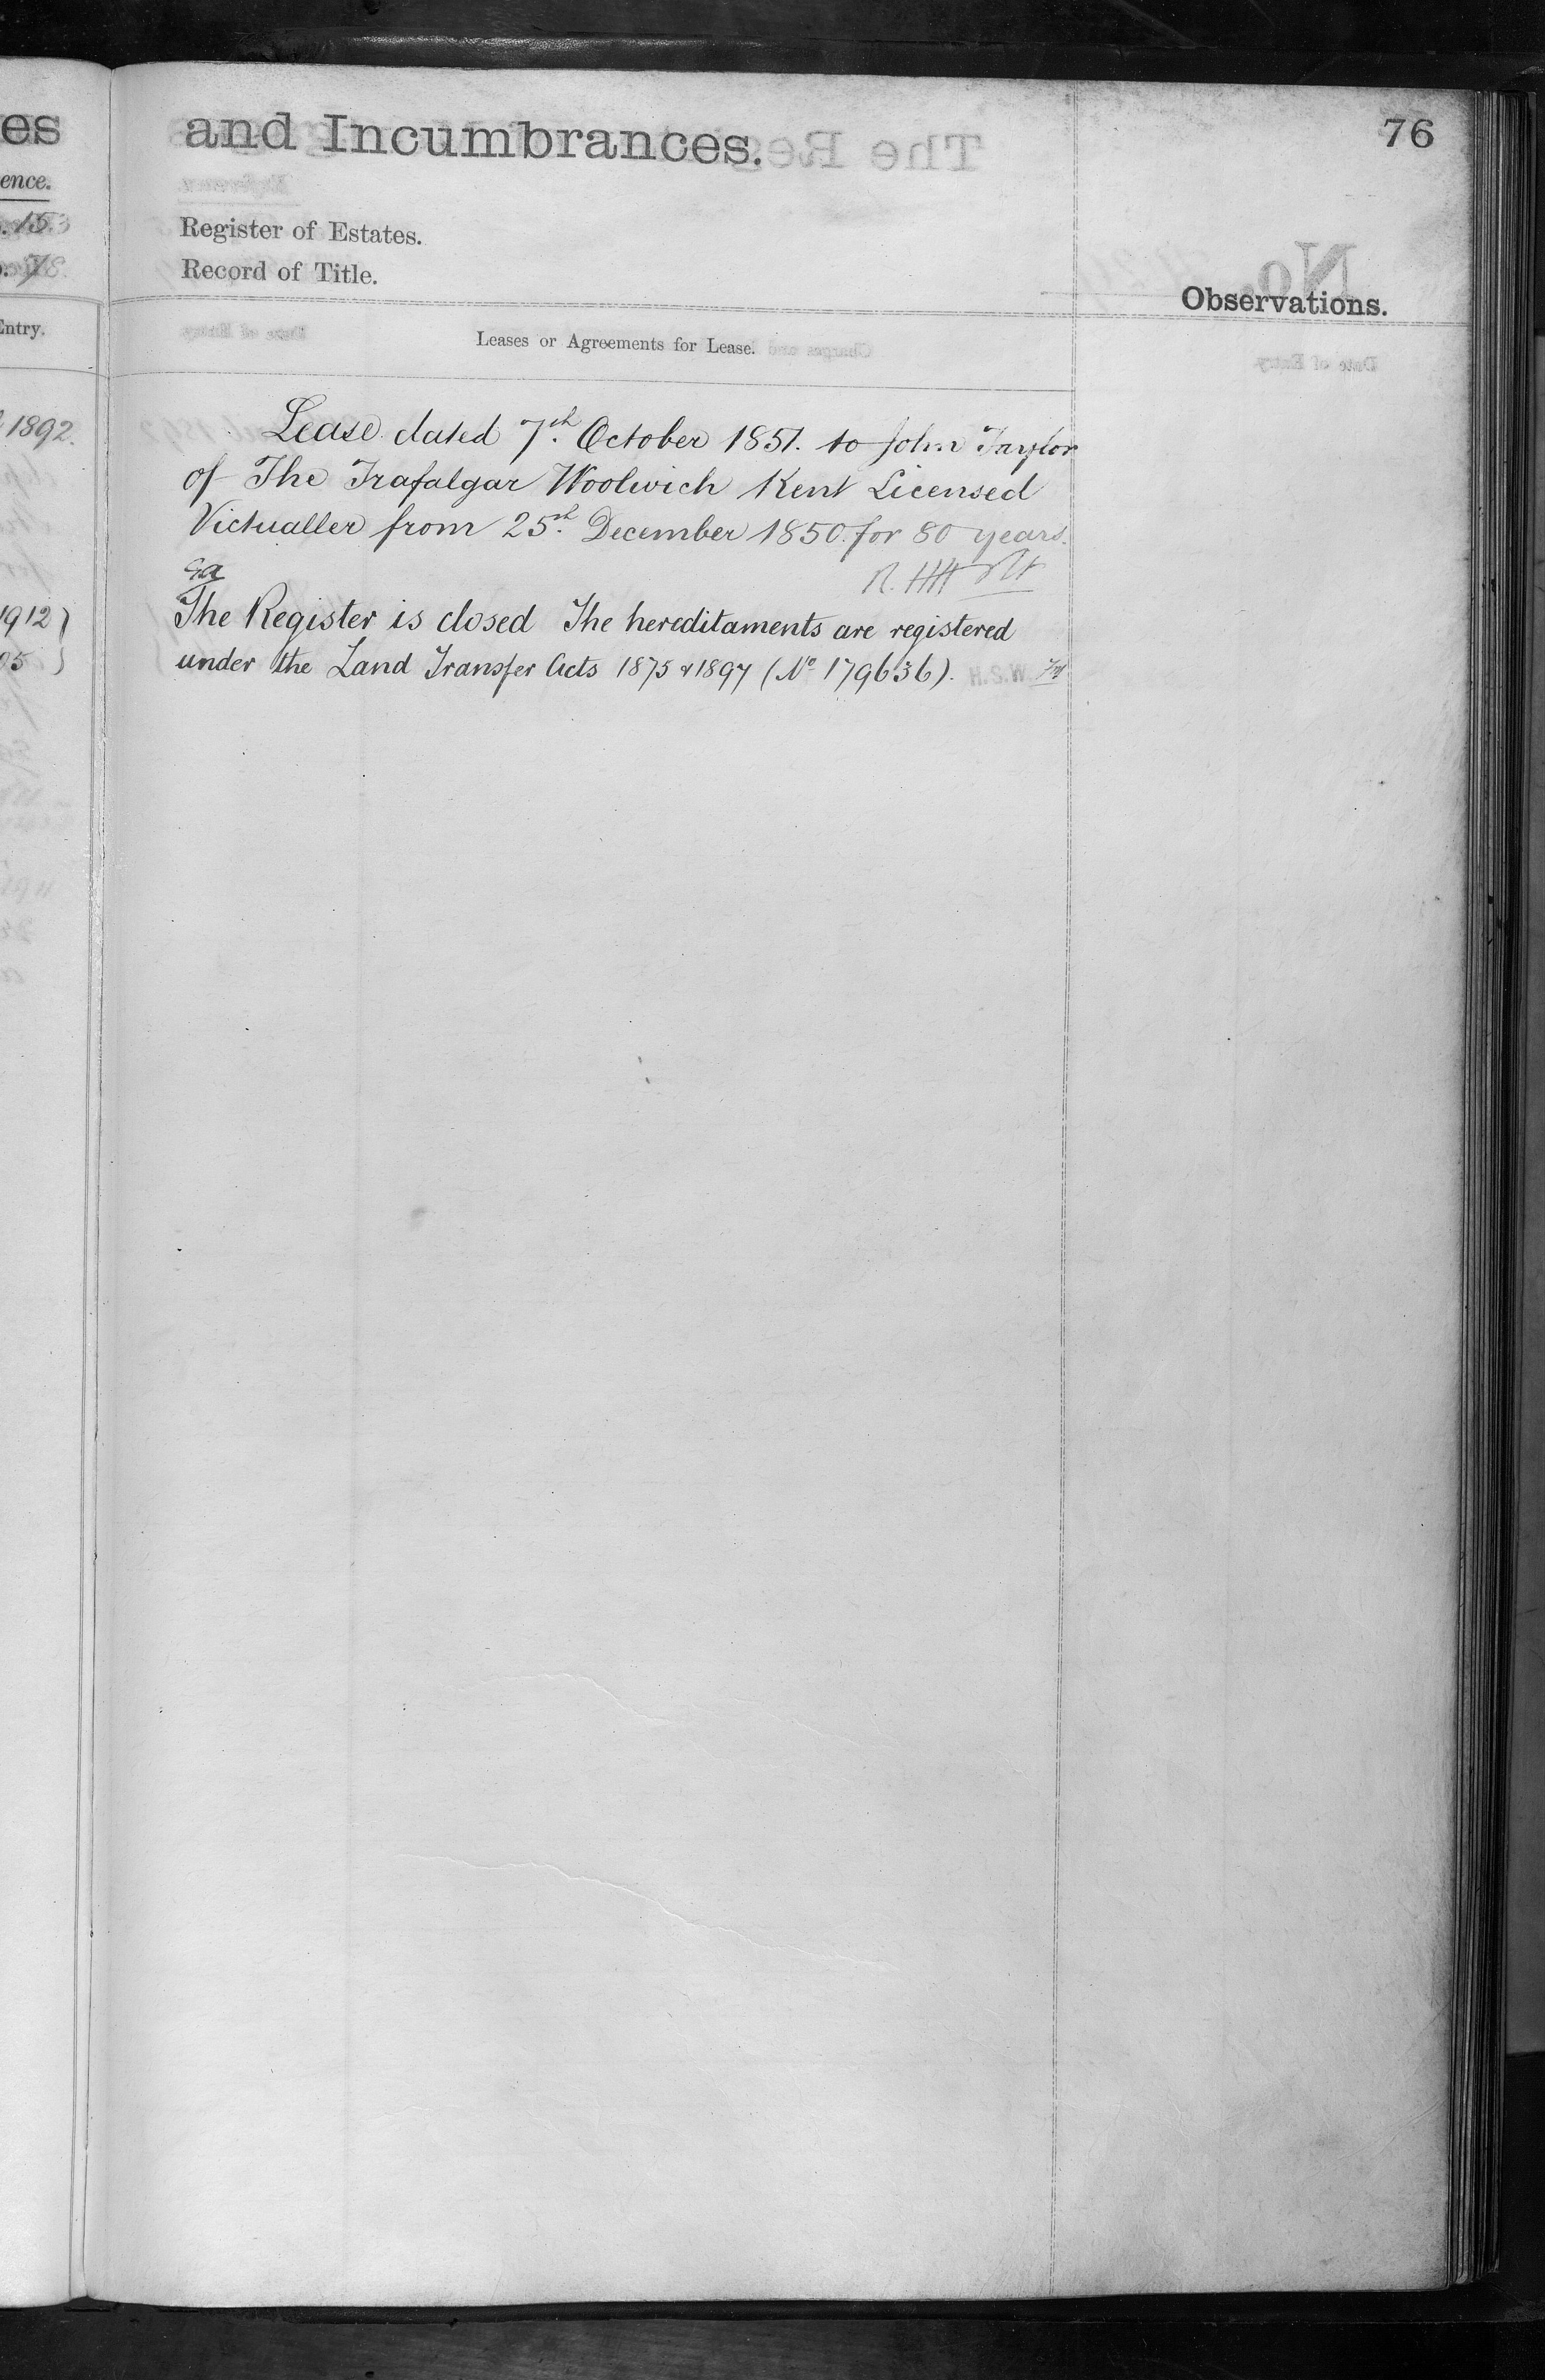 es
and Incumbrances.
76
ence.
Register of Estates.
Record of Title.
Observations.
Entry.
Leases or Agreements for Lease.
1892.
Lease dated 7th. October 1851. to John Taylor
of The Trafalgar Woolwich Kent Licensed
Victualler from 25th. December 1850. for 80 years.
The Register is closed The hereditaments are registered
1912)
under the Land Transfer Acts 1875 & 1897 (No 179636).
05 )